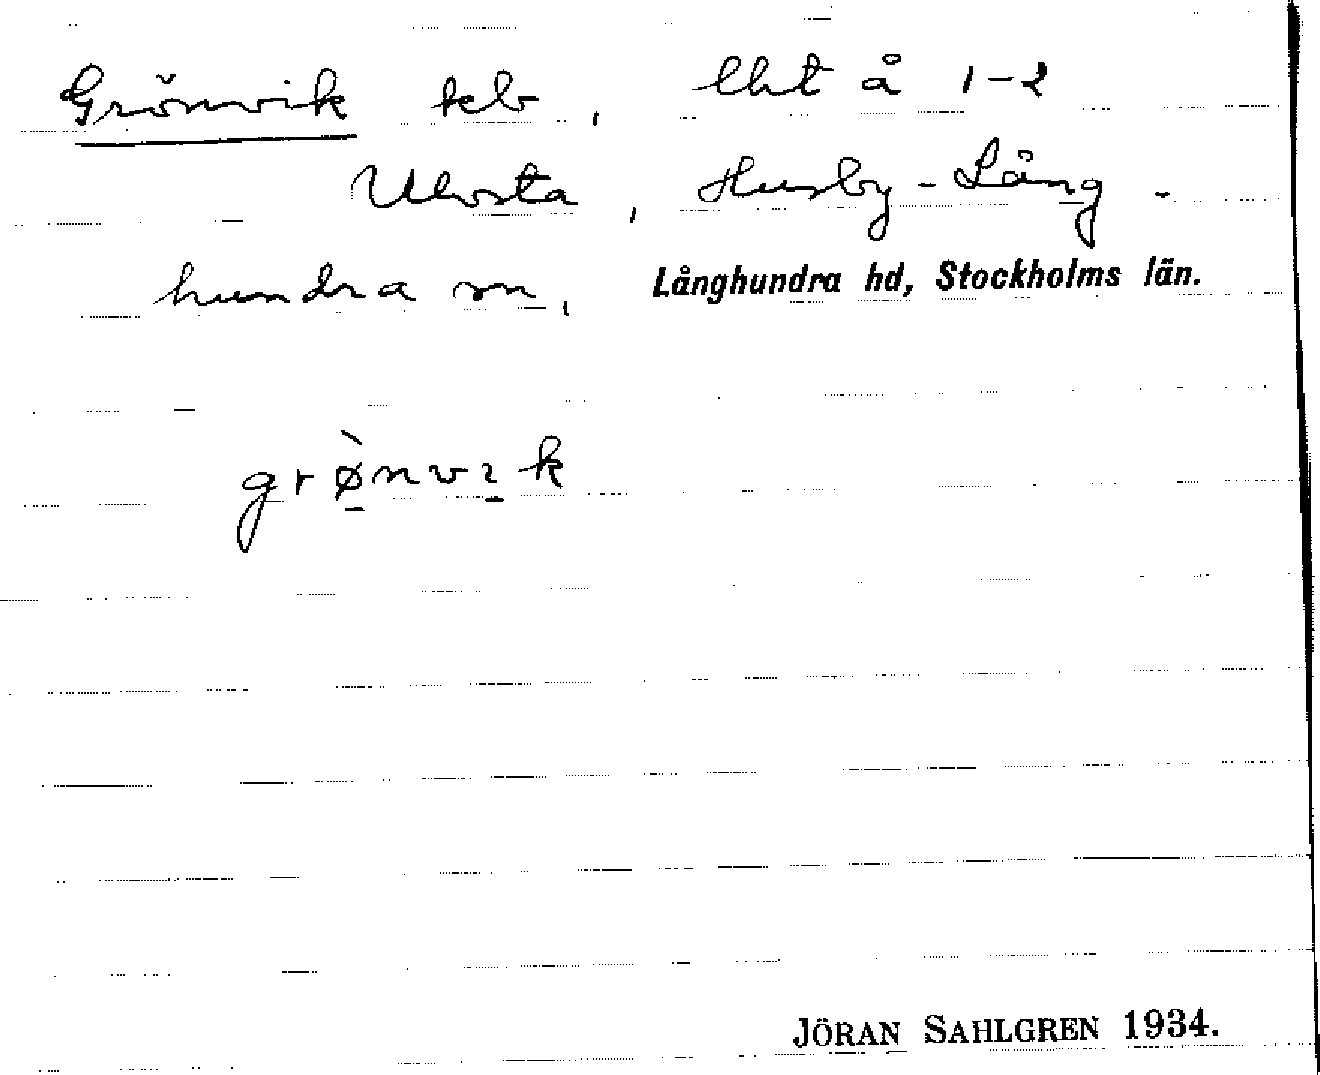 Grönvik tcb, lht å 1-2
Ulvsta, Husby-Lång-
hundra sn, Långhundra hd, Stockholms län.
grø̀nvık
JÖRAN SAHLGREN 1934.